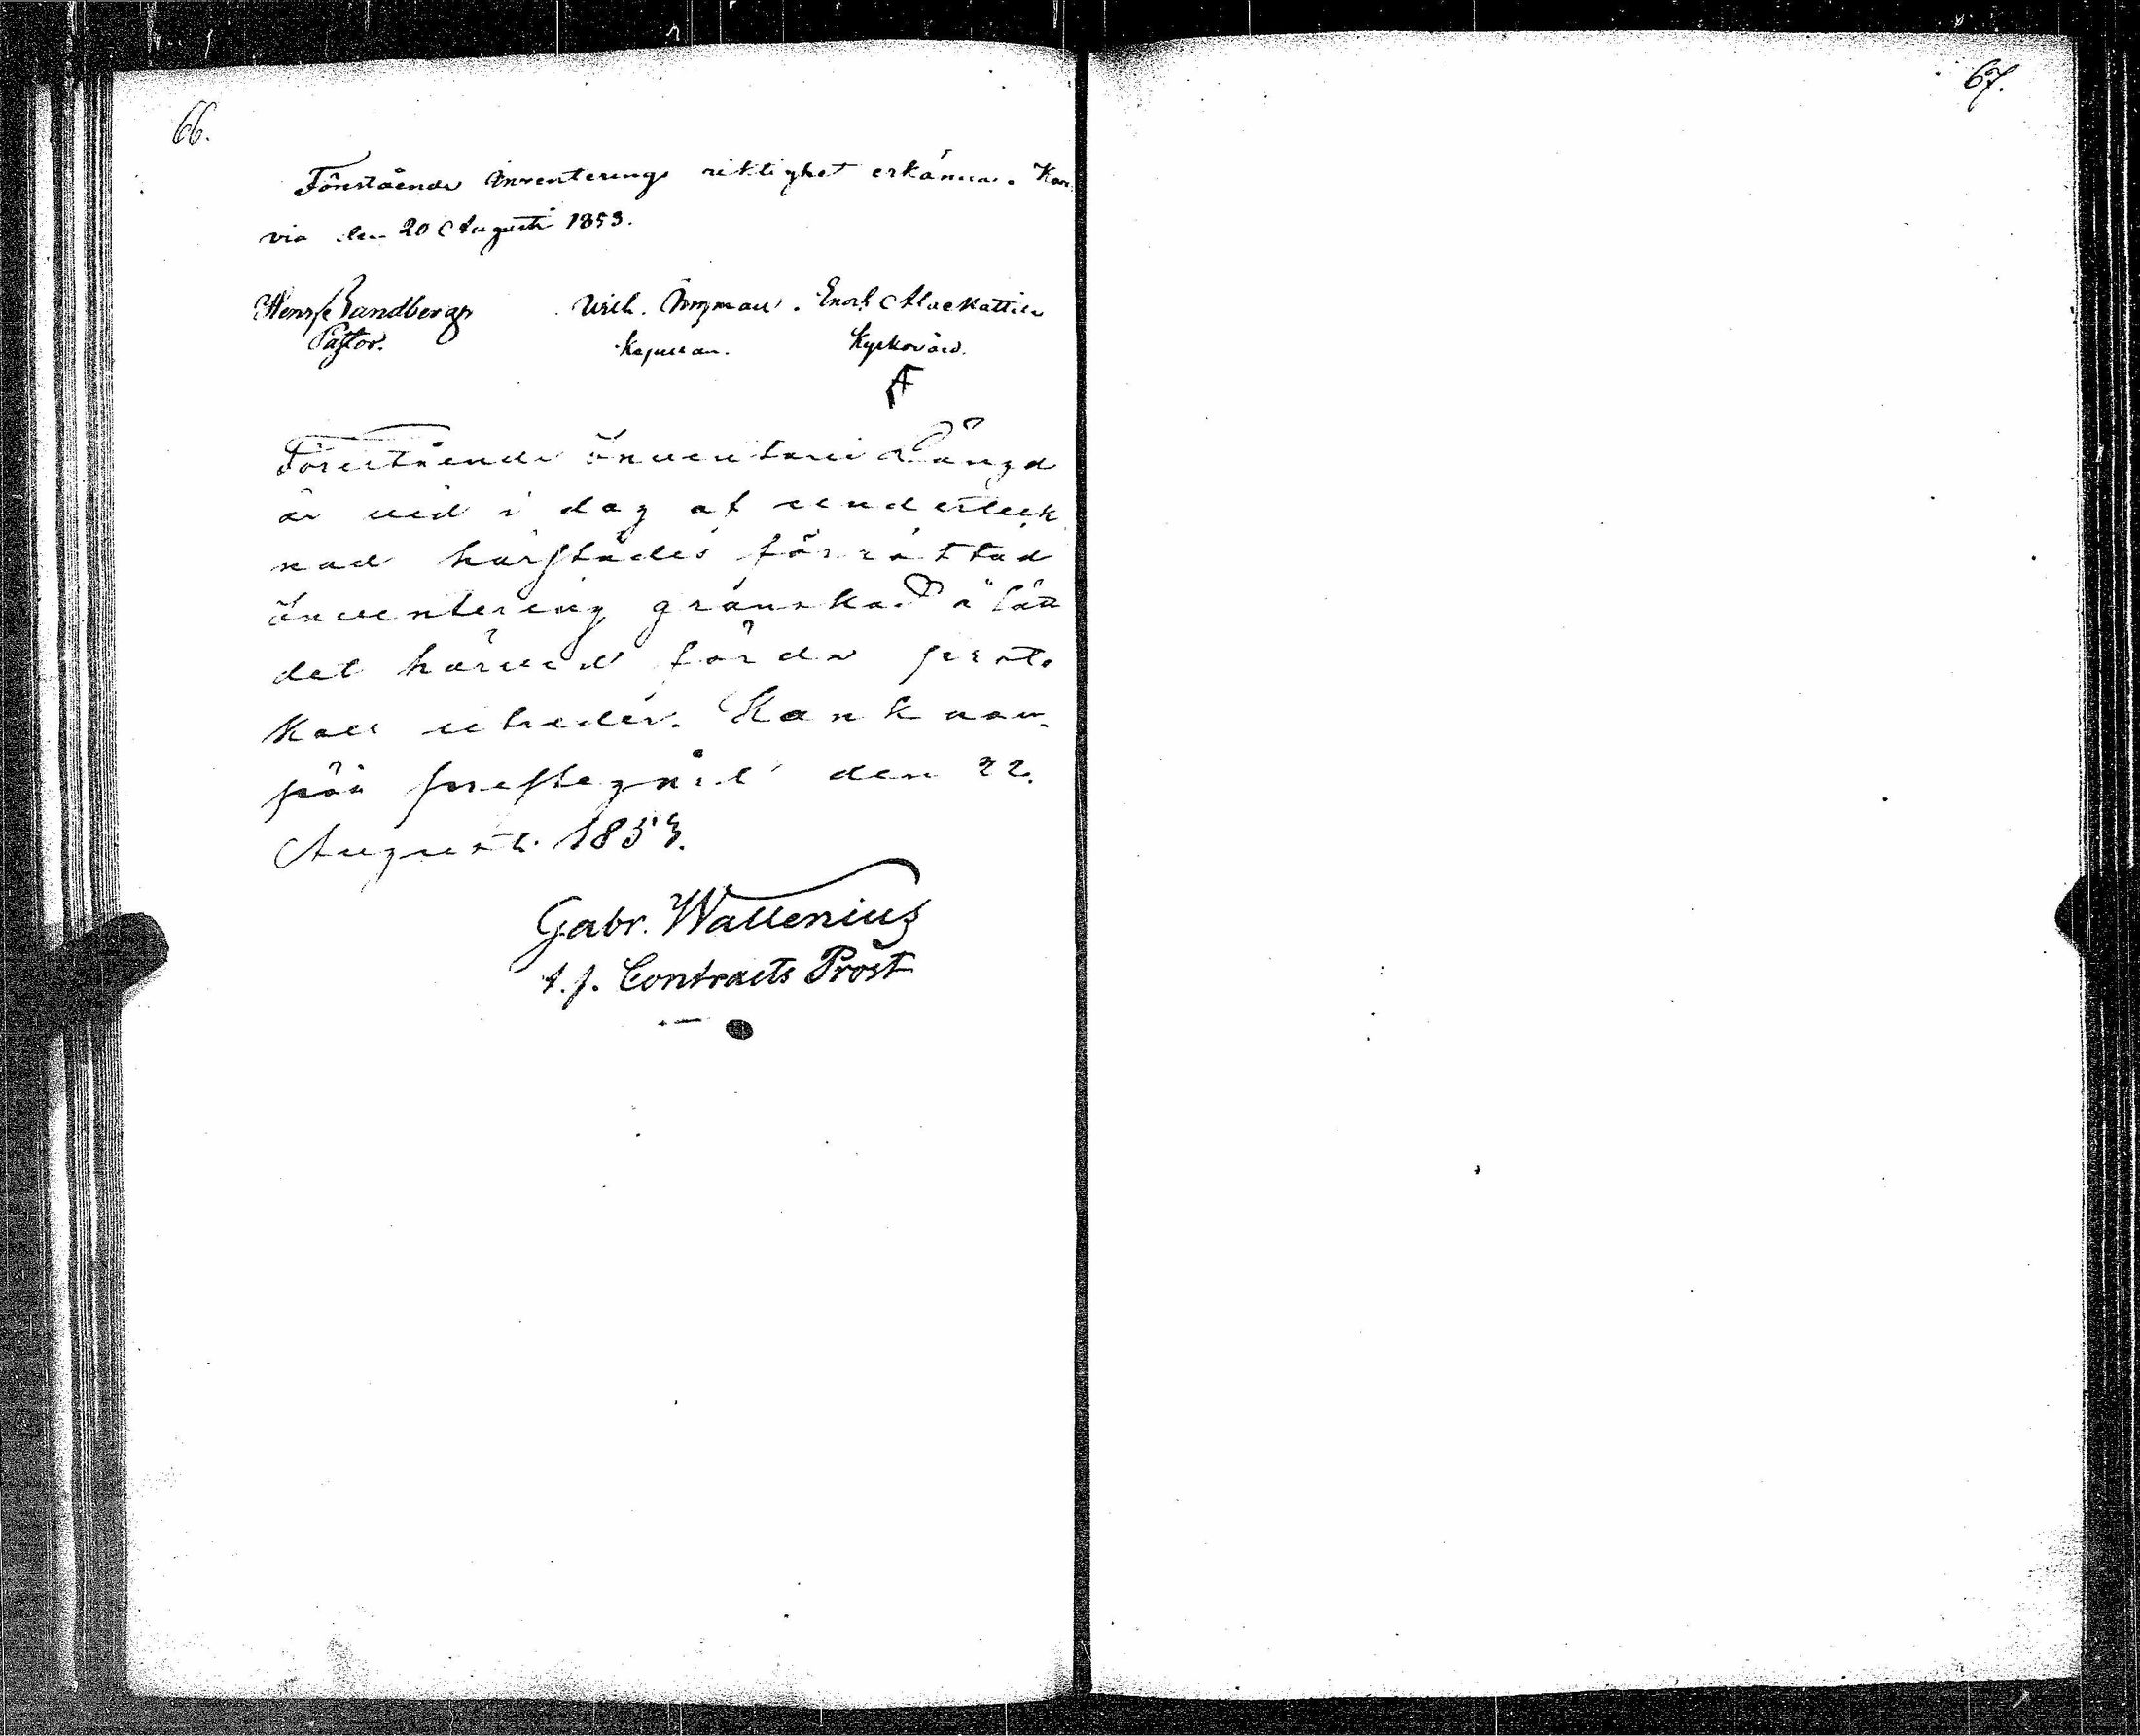 66.
67.
Förestående Inventerings riktighet erkännes. Kan
via den 20 Augusti 1853.
Henr. Sandberg Wilh. Ingman. Enoch Alaekattila
Pastor. Kapellan. Kyrkovärd.
Förestående Inventarii Längd
är vid i dag af underteck
nad härstädes förrättad
inventering granskad såsom
det härvid förda proto
koll utreder. Kankaan
pää prestegård den 22.
Augusti 1853.
Gabr. Wallenius
t.f. Contracts Prost